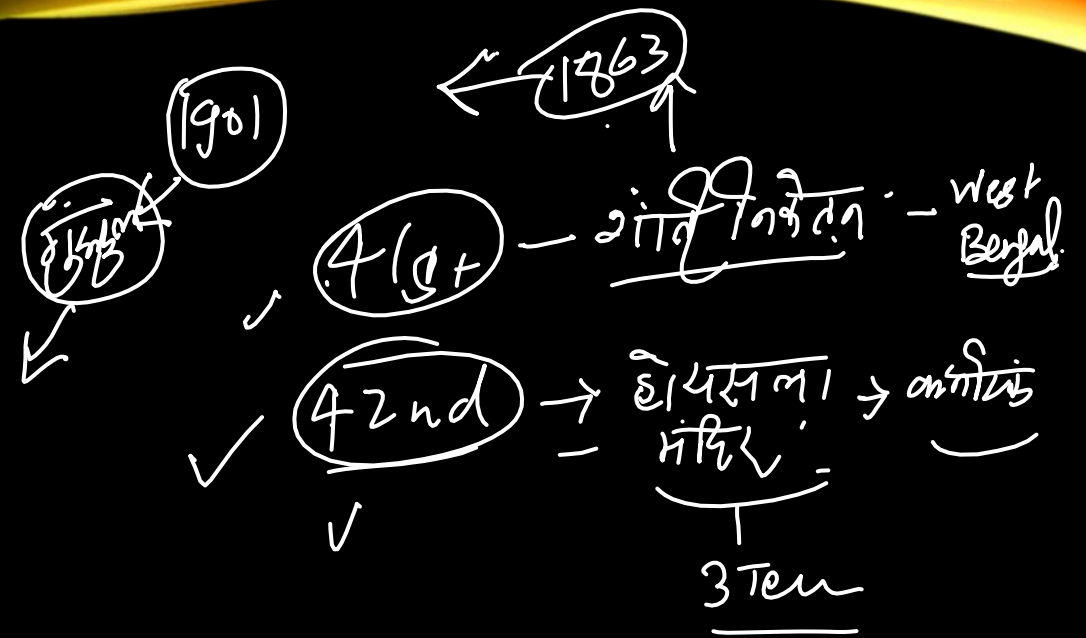 1863
1901
41st - शांति निकेतन - West Bengal.
42nd → होयसला → कर्नाटक
मंदिर
3 Tem